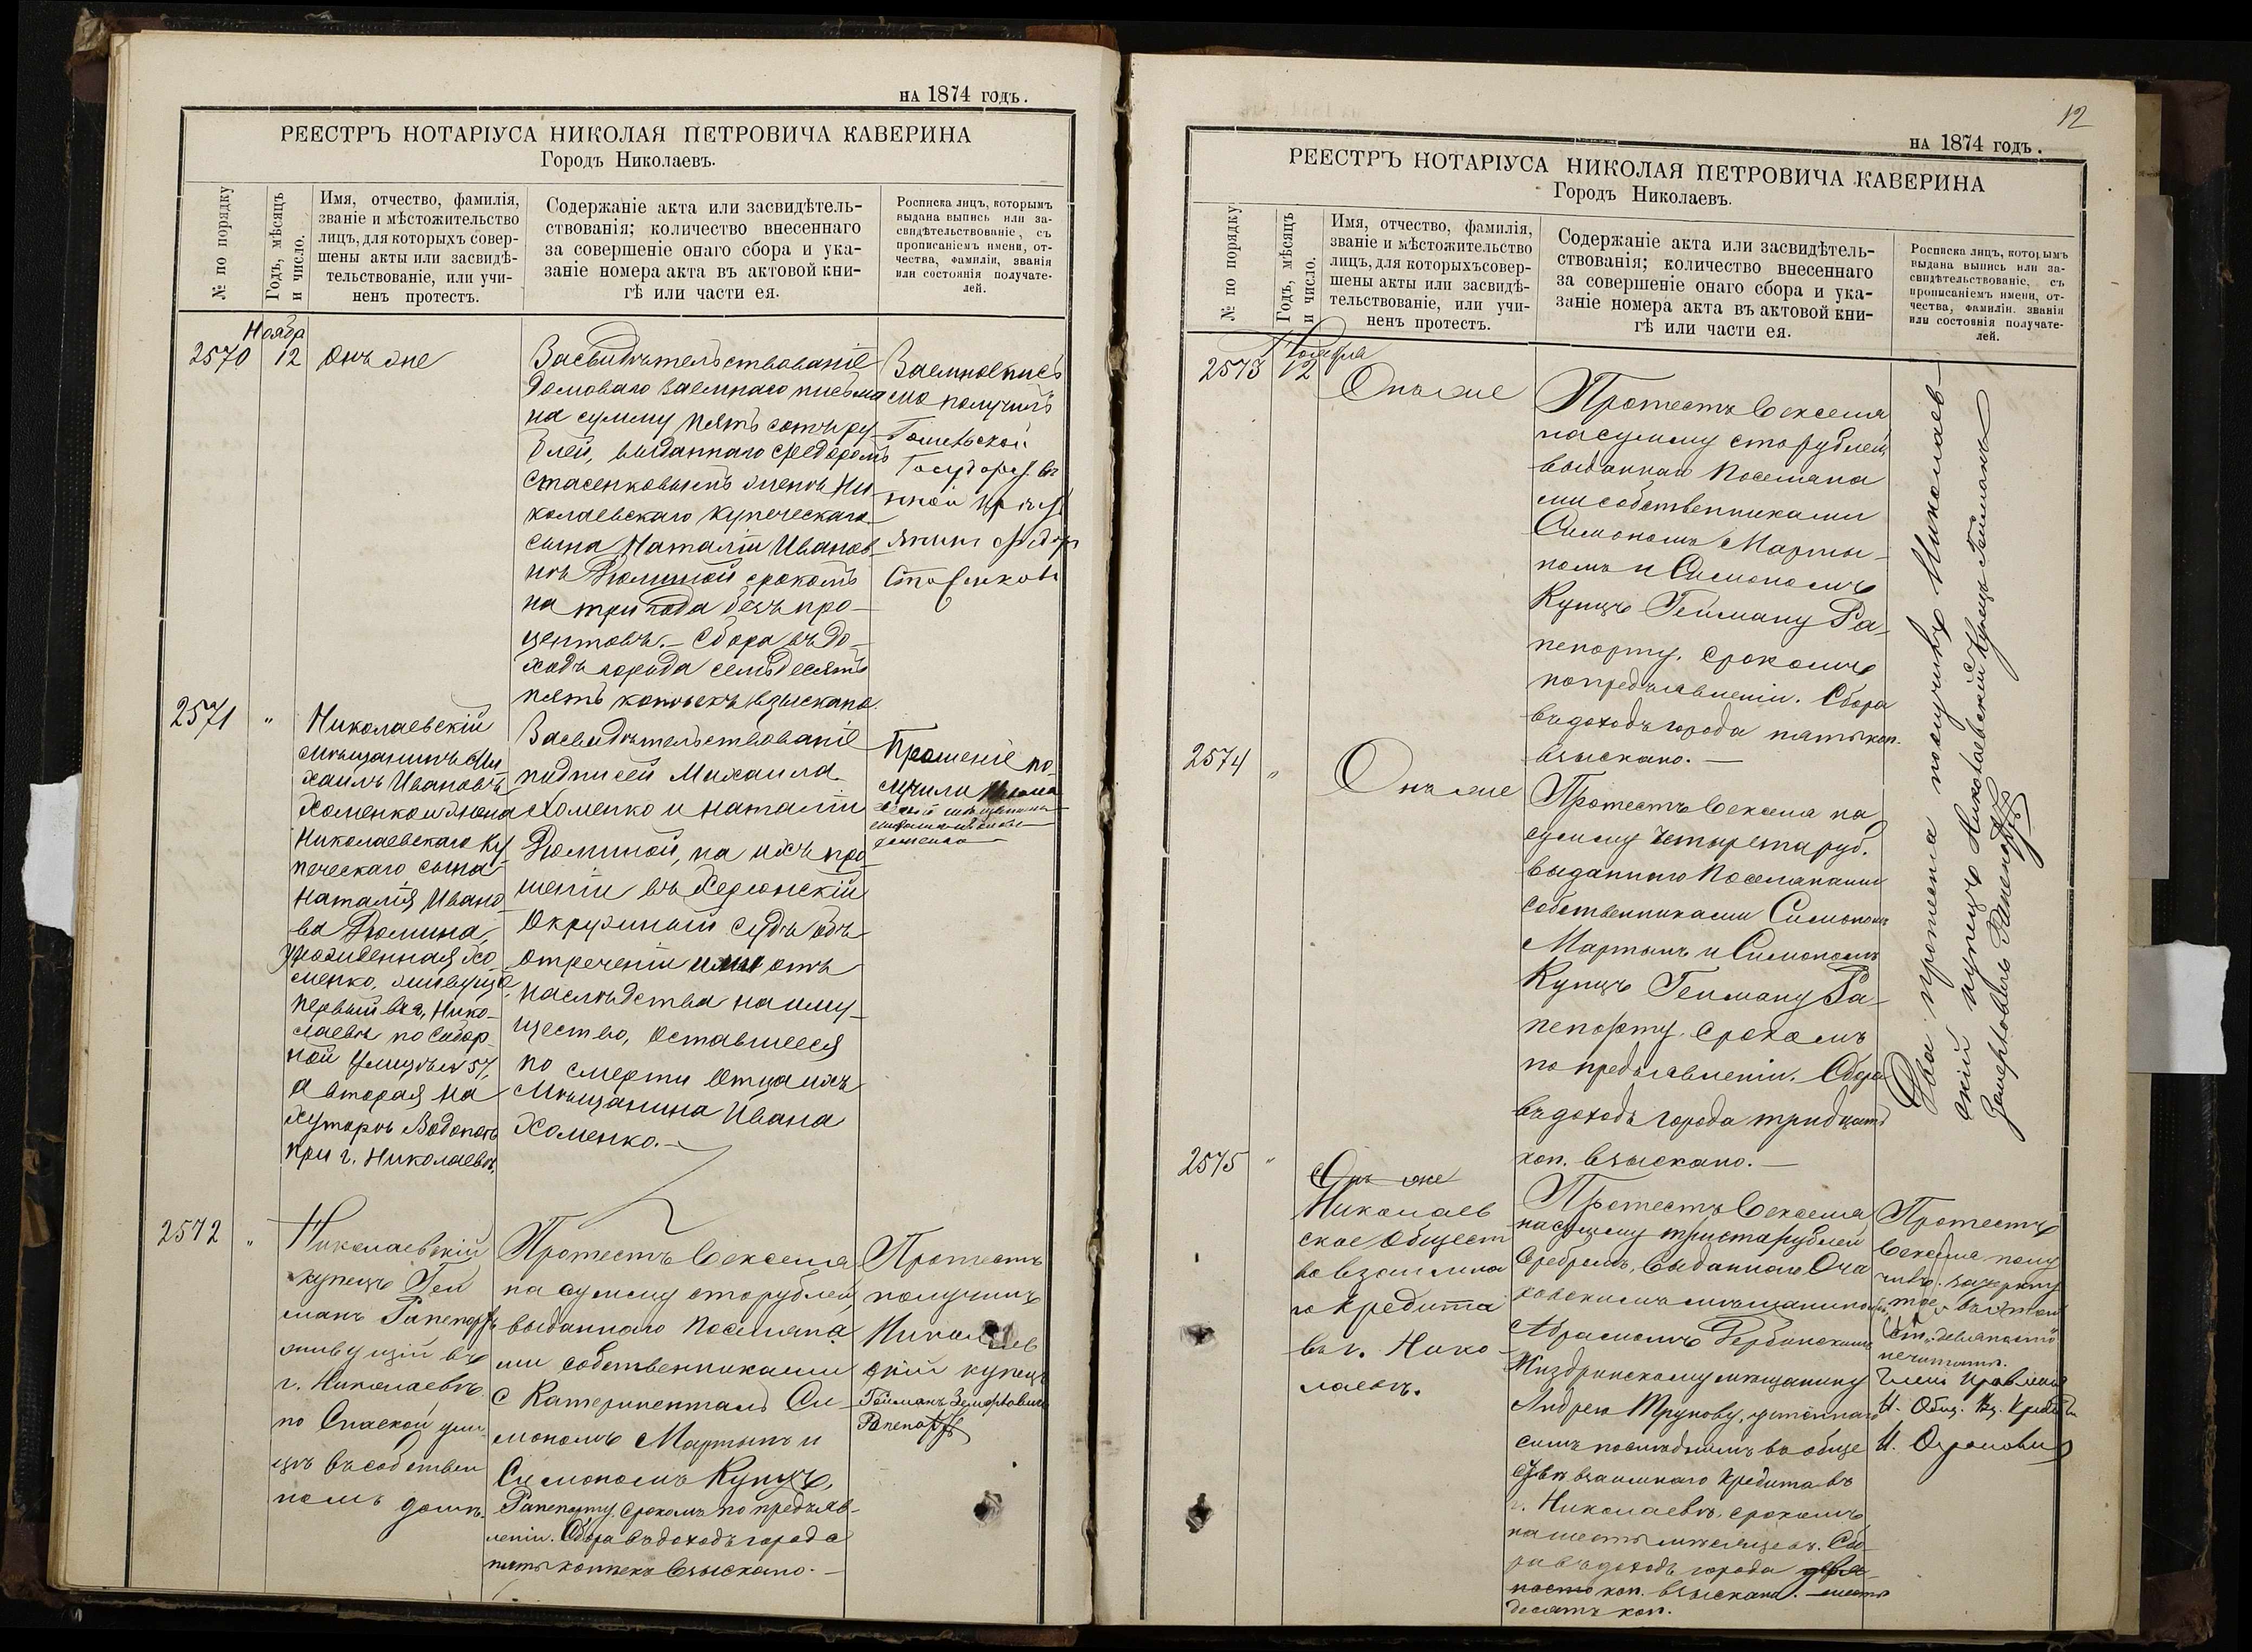 НА 1874 ГОДЪ.
РЕЕСТРЪ НОТАРІУСА НИКОЛАЯ ПЕТРОВИЧА КАВЕРИНА
Городъ Николаевъ.
№ по порядку
Годъ, мѣсяцъ
и число.
Имя, отчество, фамилія,
званіе и мѣстожительство
лицъ, для которыхъ совер-
шены акты или засвидѣ-
тельствованіе, или учи-
ненъ протестъ.
Содержаніе акта или засвидѣтель-
ствованія; количество внесеннаго
за совершеніе онаго сбора и ука-
заніе номера акта въ актовой кни-
гѣ или части ея.
Росписка лицъ, которымъ
выдана выпись или за-
свидѣтельствованіе, съ
прописаніемъ имени, от-
чества, фамиліи, званія
или состоянія получате-
лей.
Ноября
2570 12 Онъ же
Засвидѣтельствованіе
домоваго заемнаго письма
на сумму пять сотъ ру-
блей, выданнаго Федоромъ
Стасенковымъ женѣ Ни-
колаевскаго купеческаго
сына Наталіи Иванов-
нѣ Дюминой срокомъ
на три года безъ про-
центовъ. – Сбора въ до-
ходъ города семьдесятъ
пять копѣекъ взыскано.
Заемное пись
мо получилъ
Федор
Стасенковъ
2571 "
Николаевскій
мѣщанинъ Ми-
хаилъ Ивановъ
Хоменко и жена
Николаевскаго Ку-
печескаго сына
Наталія Ивано-
ва Дюмина,
урожденная Хо-
менко, живущіе
первый въ г. Нико-
лаевѣ по Собор-
ной улицѣ № 57,
а вторая на
Хуторѣ Водопоѣ
при г. Николаевѣ.
Засвидѣтельствованіе
подписей Михаила
Хоменко и Наталіи
Дюминой, на ихъ про-
шеніи въ Херсонскій
Окружный Судъ объ
отреченіи ими отъ
наслѣдства на иму-
щество, оставшееся
по смерти Отца ихъ
мѣщанина Ивана
Хоменко. –
Прошеніе по-
лучили
2572 "
Николаевскій
купецъ Гей
манъ Рапепортъ
живущій въ
г. Николаевѣ
по Спаской ули
цѣ въ собствен
номъ домѣ.
Протестъ векселя
на сумму сто рублей,
выданнаго Поселяна
ми собственниками
с Катериненталь Си-
мономъ Мартынъ и
Симономъ Купцъ,
Рапепорту срокомъ по предъяв-
леніи. Сбора въ доходъ города
пять копѣекъ взыскано. –
Протестъ
получилъ
Николаев
скій купецъ
Гейманъ
Рапепортъ
12
НА 1874 ГОДЪ.
РЕЕСТРЪ НОТАРІУСА НИКОЛАЯ ПЕТРОВИЧА КАВЕРИНА
Городъ Николаевъ.
№ по порядку
Годъ, мѣсяцъ
и число.
Имя, отчество, фамилія,
званіе и мѣстожительство
лицъ, для которыхъ совер-
шены акты или засвидѣ-
тельствованіе, или учи-
ненъ протестъ.
Содержаніе акта или засвидѣтель-
ствованія; количество внесеннаго
за совершеніе онаго сбора и ука-
заніе номера акта въ актовой кни-
гѣ или части ея.
Росписка лицъ, которымъ
выдана выпись или за-
свидѣтельствованіе, съ
прописаніемъ имени, от-
чества, фамиліи, званія
или состоянія получате-
лей.
Ноября
2573 12 Онъ же
Протестъ векселя
на сумму сто рублей,
выданнаго Поселяна
ми собственниками
Симономъ Марты-
номъ и Симономъ
Купцъ Гейману Ра-
пепорту, срокомъ
по предъявленіи. Сбора
въ доходъ города пять коп.
взыскано. –
2574 " Онъ же
Протестъ векселя на
сумму четыреста руб.
выданнаго Поселянами
собственниками Симономъ
Мартынъ и Симономъ
Купцъ Гейману Ра-
пепорту срокомъ
по предъявленіи. Сбора
въ доходъ города тридцать
коп. взыскано. –
Два протеста получилъ Николаев-
скій купецъ
Рапепортъ
2575 "
Онъ же
Николаев
ское Общест
во взаимна
го кредита
въ г. Нико-
лаевѣ.
Протестъ векселя
на сумму триста рублей
серебромъ, выданнаго Оча
ковскимъ мѣщаниномъ
Абрамомъ Гербинскимъ
Жиздринскому мѣщанину
Андрею Трунову, учтённаго
симъ послѣднимъ въ обще
ствѣ взаимнаго кредита въ
г. Николаевѣ, срокомъ
на шесть мѣсяцевъ. Сбо
ра въ доходъ города девя-
носто коп. взыскано. – шесть
десятъ коп.
Протестъ
векселя полу
чилъ
девяносто
не читать.
Членъ Правленія
Н. Общ. Вз. Кредита